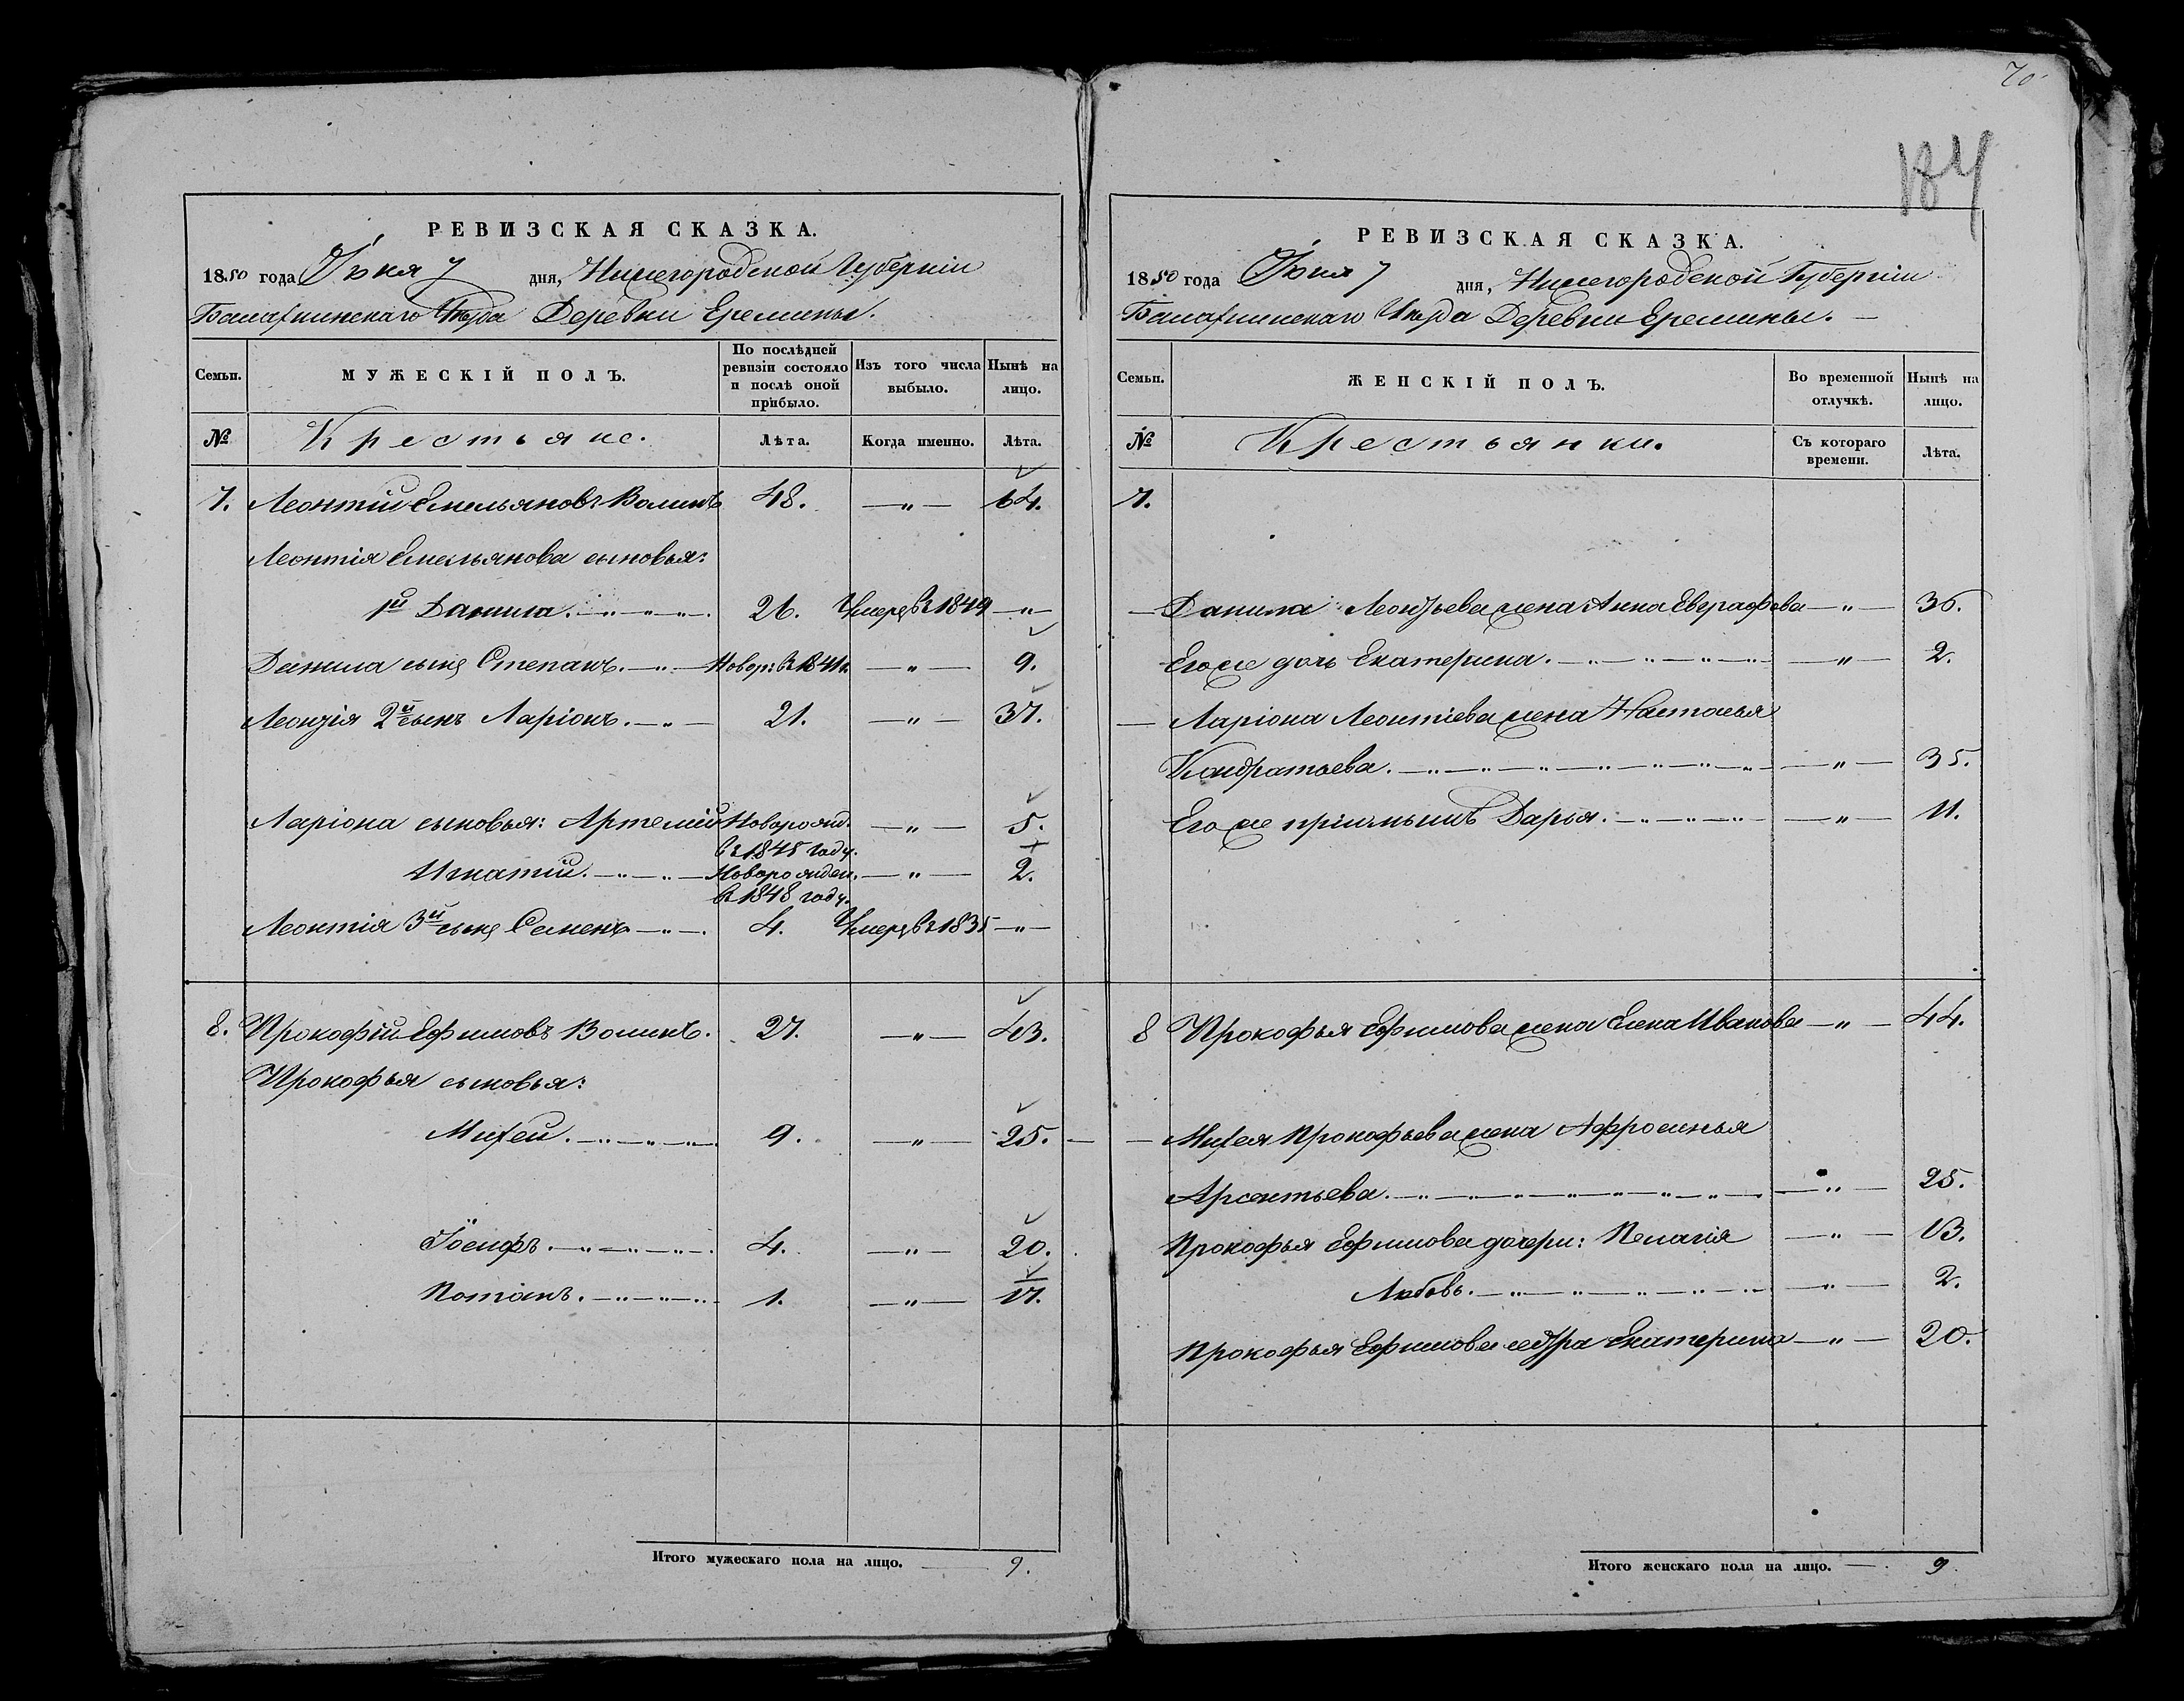 70
184
РЕВИЗСКАЯ СКАЗКА.
1850 года Іюня 7 дня, Нижегородской Губерніи
Балахнинскаго Уѣзда Деревни Еремины.
Семьи. МУЖЕСКІЙ ПОЛЪ. По послѣдней ревизіи состояло и послѣ оной прибыло. Изъ того числа выбыло. Нынѣ на лицо.
№ Крестьяне. Лѣта. Когда именно. Лѣта.
7. Леонтій Емельяновъ Волинъ 48. —„— 64.
Леонтія Емельянова сыновья:
1й Данила. —„—„—„—. 26. Умеръ въ 1849 —„—
Данила сынъ Степанъ. —„— Новор: въ 1841. —„— 9.
Леонтія 2й сынъ Ларіонъ. —„— 21. —„— 37.
Ларіона сыновья: Артемій Новорожд. —„— 5.
въ 1845 году.
Игнатій. —„—„— Новорожден. —„— 2.
въ 1848 году.
Леонтія 3й сынъ Семенъ —„—. 4. Умеръ въ 1835 —„—
8. Прокофій Ефимовъ Волинъ. 27. —„— 43.
Прокофья сыновья:
Михей. —„—„—„— 9. —„— 25.
Іосифъ. —„—„—„— 4. —„— 20.
Потапъ. —„—„—„— 1. —„— 17.
Итого мужескаго пола на лицо. — 9.
РЕВИЗСКАЯ СКАЗКА.
1850 года Іюня 7 дня, Нижегородской Губерніи
Балахнинскаго Уѣзда Деревни Еремины. —
Семьи. ЖЕНСКІЙ ПОЛЪ. Во временной отлучкѣ. Нынѣ на лицо.
№ Крестьянки. Съ котораго времени. Лѣта.
7.
Данила Леонтьева жена Анна Евграфова —„— 36.
Его же дочь Екатерина. —„—„—„—„— —„— 2.
Ларіона Леонтіева жена Настасья
Кондратьева. —„—„—„—„—„—„— —„— 35.
Его же пріимышъ Дарья. —„—„—„— —„— 11.
8 Прокофья Ефимова жена Елена Иванова —„— 44.
Михея Прокофьева жена Афросинья
Арсентьева. —„—„—„—„—„—„— —„— 25.
Прокофья Ефимова дочери: Пелагія —„— 13.
Любовь. —„—„—„—„—„— —„— 2.
Прокофья Ефимова сестра Екатерина —„— 20.
Итого женскаго пола на лицо. — 9